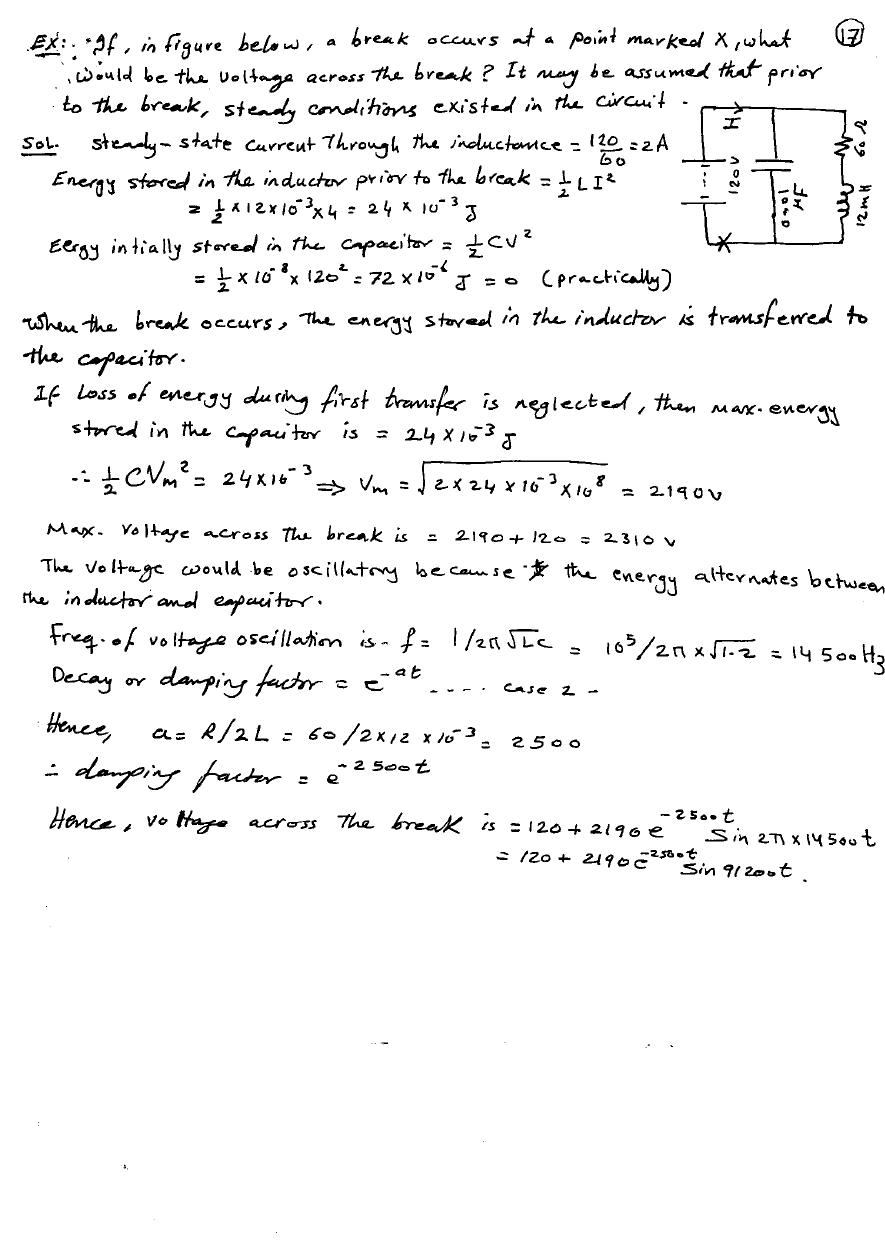 17
EX:. "If, in figure below, a break occurs at a point marked X, what
would be the voltage across the break? It may be assumed that prior
to the break, steady conditions existed in the circuit.
I
120 V
0.01 μF
60 Ω
12mH
X
Sol. steady-state current Through the inductance = 120/60 = 2A
Energy stored in the inductor prior to the break = 1/2 LI²
= 1/2 × 12×10⁻³×4 = 24 × 10⁻³ J
Eergy intially stored in the capacitor = 1/2 CV²
= 1/2 × 10⁻⁸ × 120² = 72 × 10⁻⁶ J = 0 (practically)
When the break occurs, The energy stored in the inductor is transferred to
the capacitor.
If Loss of energy during first transfer is neglected, then max. energy
stored in the capacitor is = 24 × 10⁻³ J
∴ 1/2 CVm² = 24×10⁻³ ⇒ Vm = √2×24×10⁻³×10⁸ = 2190v
Max. Voltage across The break is = 2190 + 120 = 2310 v
The voltage would be oscillatory because the energy alternates between
the inductor and capacitor.
Freq. of voltage oscillation is - f = 1/2π√LC = 10⁵/2π×√1.2 = 14 500 Hz
Decay or damping factor = e⁻ᵃᵗ .... case 2 -
Hence, a = R/2L = 60/2×12×10⁻³ = 2500
∴ damping factor = e⁻²⁵⁰⁰ᵗ
Hence, voltage across The break is = 120 + 2190 e⁻²⁵⁰⁰ᵗ Sin 2π × 14500t
= 120 + 2190 e⁻²⁵⁰⁰ᵗ Sin 91200t.